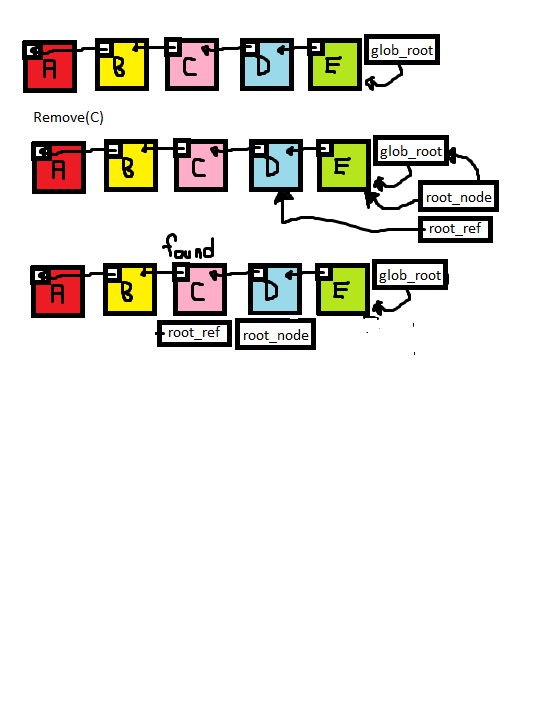 A B C D E glob_root
Remove(C)
A B C D E glob_root
root_node
root_ref
found
A B C D E glob_root
root_ref root_node